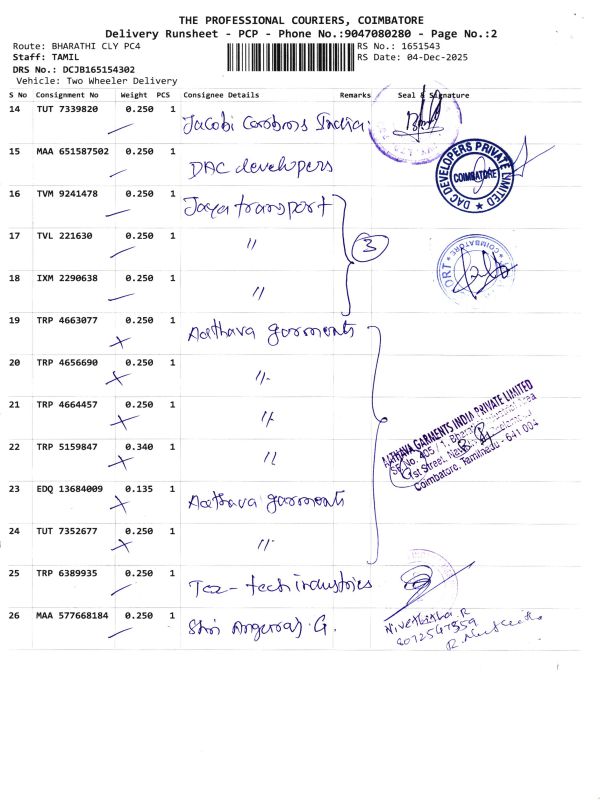 THE PROFESSIONAL COURIERS, COIMBATORE
Delivery Runsheet - PCP - Phone No.:9047080280 - Page No.:2
Route: BHARATHI CLY PC4 RS No.: 1651543
Staff: TAMIL RS Date: 04-Dec-2025
DRS No.: DCJB165154302
Vehicle: Two Wheeler Delivery
S No Consignment No Weight PCS Consignee Details Remarks Seal & Signature
14 TUT 7339820 0.250 1 Jacobi Carbons India
15 MAA 651587502 0.250 1 DAC developers
DAC DEVELOPERS PRIVATE LIMITED
COIMBATORE
16 TVM 9241478 0.250 1 Jaya transport
17 TVL 221630 0.250 1 "
3
COIMBATORE
18 IXM 2290638 0.250 1 "
19 TRP 4663077 0.250 1 Aathava garments
20 TRP 4656690 0.250 1 "
21 TRP 4664457 0.250 1 "
AATHAVA GARMENTS INDIA PRIVATE LIMITED
SF No. 405 / 1, Industrial Area
1st Street,
Coimbatore, Tamilnadu - 641 004
22 TRP 5159847 0.340 1 "
23 EDQ 13684009 0.135 1 Aathava garments
24 TUT 7352677 0.250 1 "
25 TRP 6389935 0.250 1 Tez-tech industries
26 MAA 577668184 0.250 1 Shri G.
Nivethitha R
8072547359